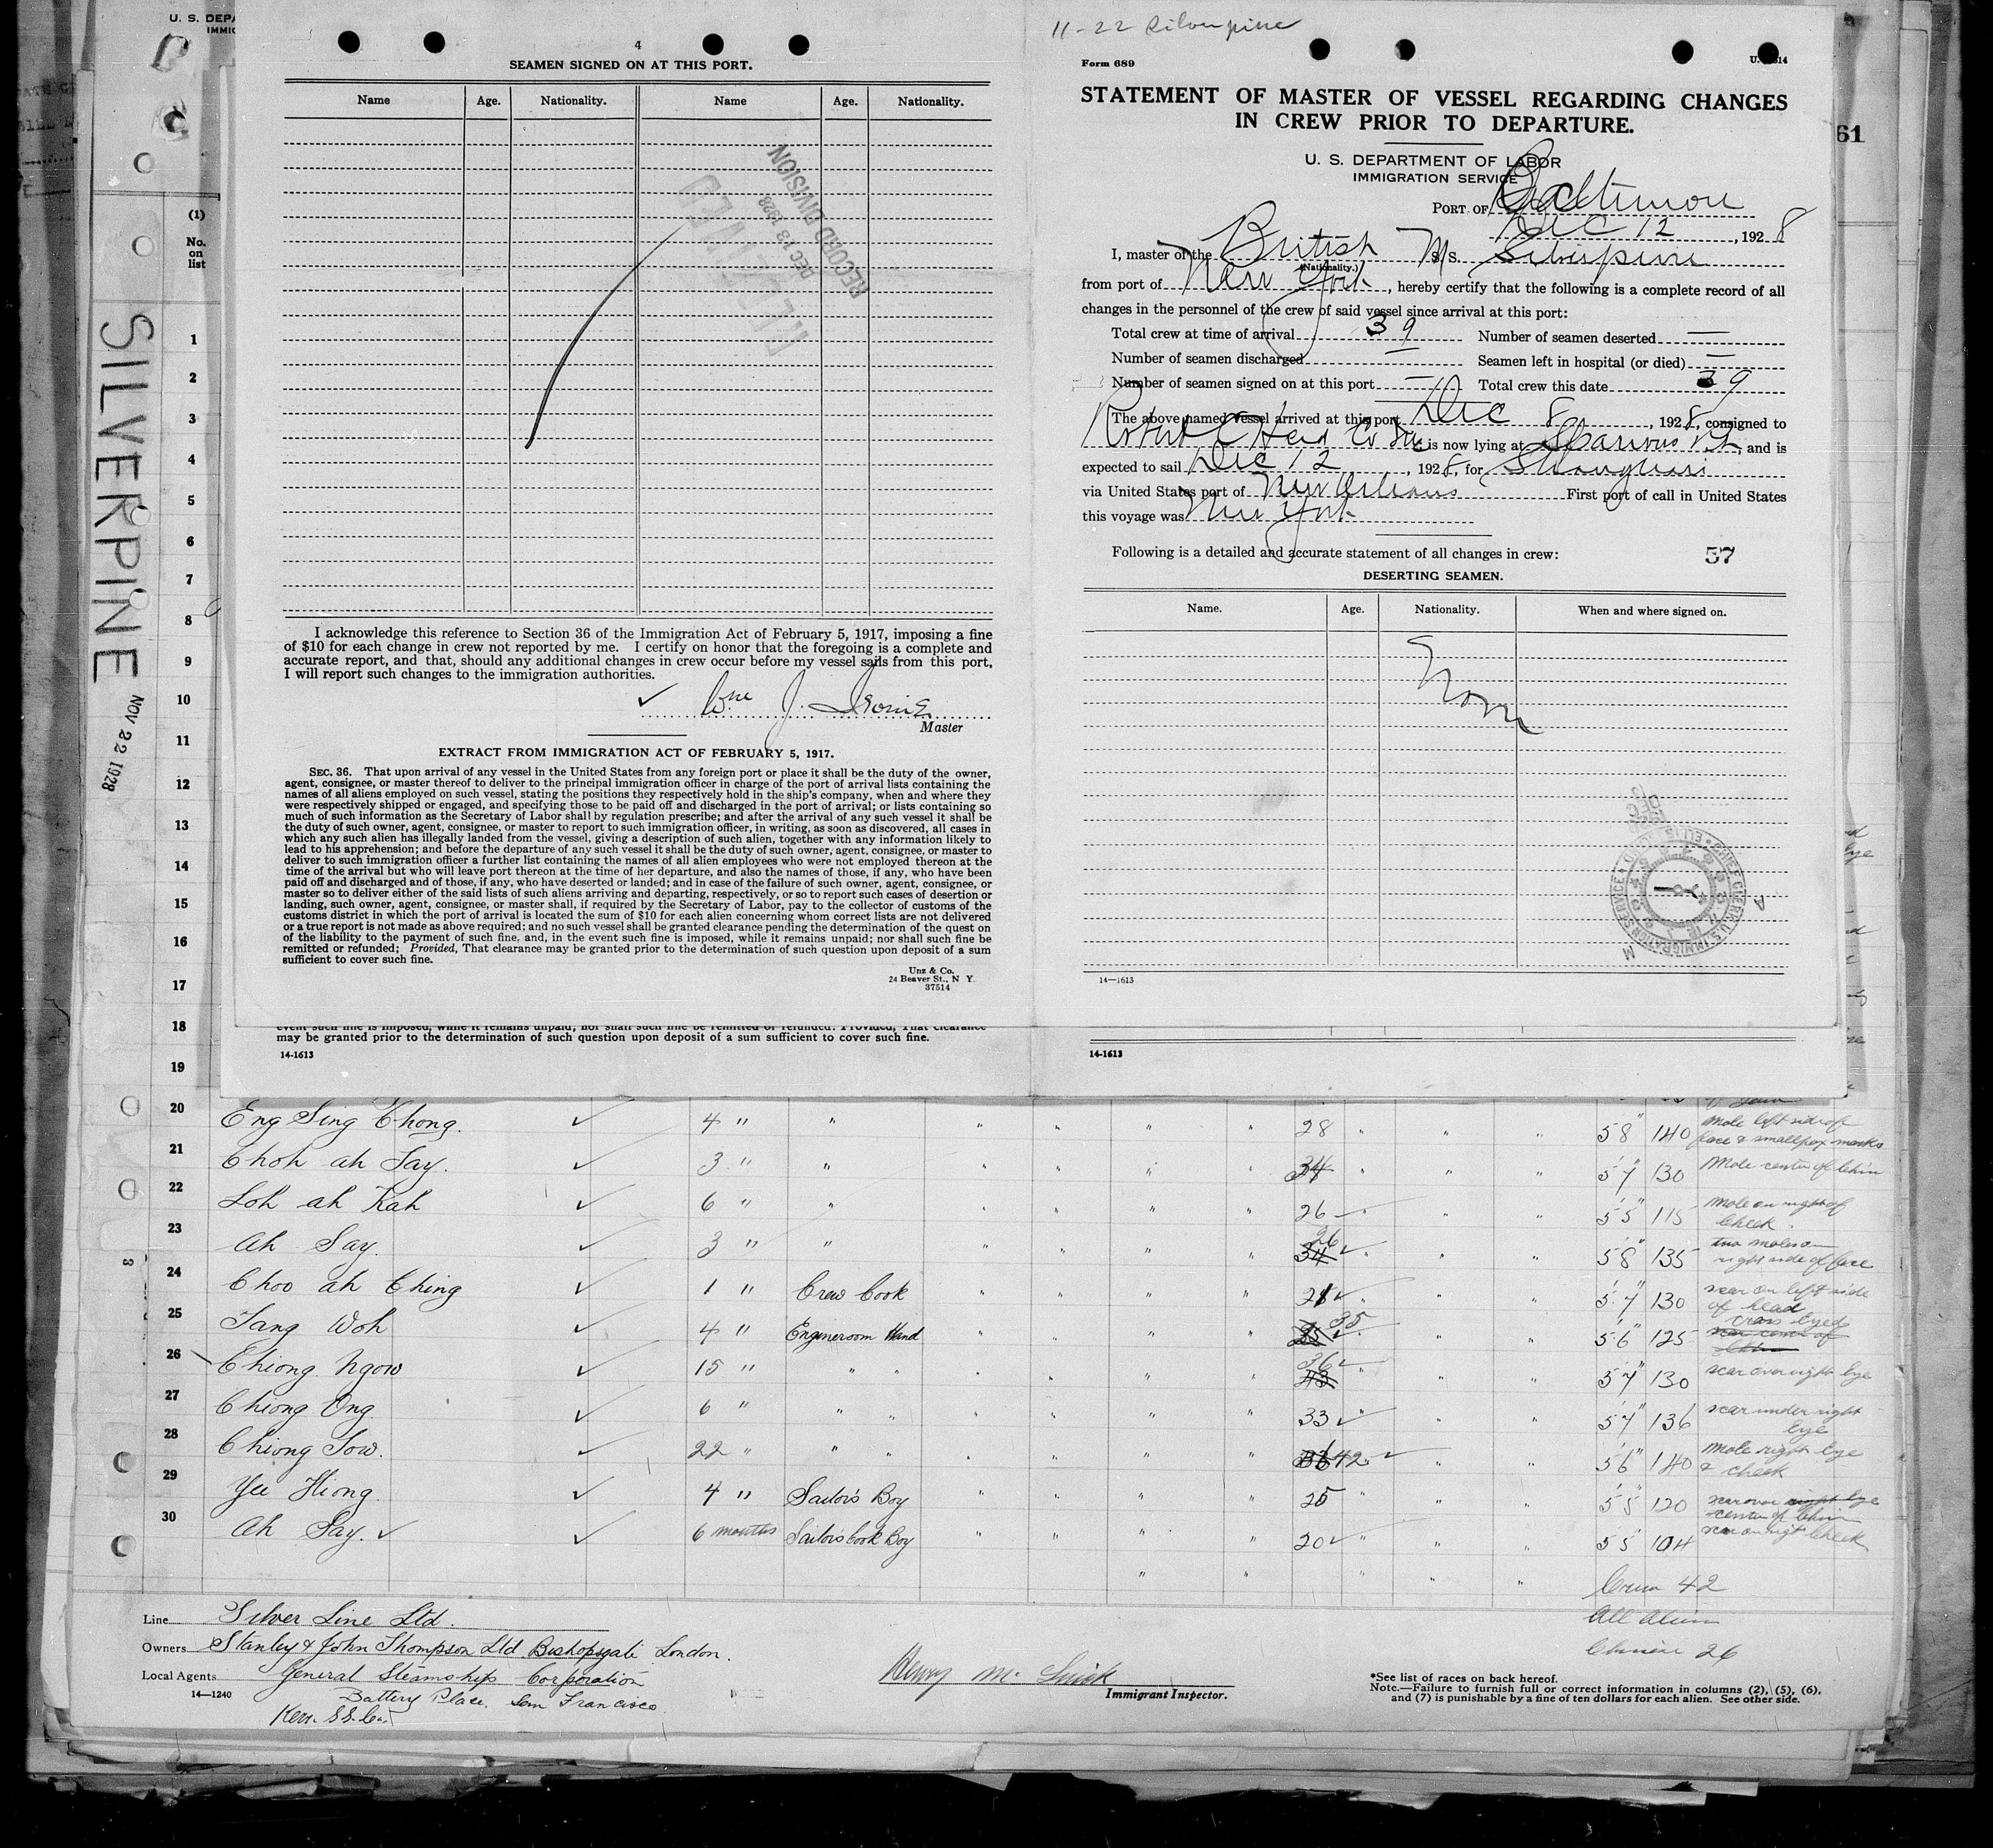 U. S. DEPA
IMMIG
(1)
No.
on
list
SILVERPINE
NOV 22 1928
1
2
3
4
5
6
7
8
9
10
11
12
13
14
15
16
17
18
19
4
SEAMEN SIGNED ON AT THIS PORT.
Name Age. Nationality. Name Age. Nationality.
RECEIVED
DEC 13 1928
RECORD DIVISION
I acknowledge this reference to Section 36 of the Immigration Act of February 5, 1917, imposing a fine
of $10 for each change in crew not reported by me. I certify on honor that the foregoing is a complete and
accurate report, and that, should any additional changes in crew occur before my vessel sails from this port,
I will report such changes to the immigration authorities.
Wm J.
Master
EXTRACT FROM IMMIGRATION ACT OF FEBRUARY 5, 1917.
SEC. 36. That upon arrival of any vessel in the United States from any foreign port or place it shall be the duty of the owner,
agent, consignee, or master thereof to deliver to the principal immigration officer in charge of the port of arrival lists containing the
names of all aliens employed on such vessel, stating the positions they respectively hold in the ship's company, when and where they
were respectively shipped or engaged, and specifying those to be paid off and discharged in the port of arrival; or lists containing so
much of such information as the Secretary of Labor shall by regulation prescribe; and after the arrival of any such vessel it shall be
the duty of such owner, agent, consignee, or master to report to such immigration officer, in writing, as soon as discovered, all cases in
which any such alien has illegally landed from the vessel, giving a description of such alien, together with any information likely to
lead to his apprehension; and before the departure of any such vessel it shall be the duty of such owner, agent, consignee, or master to
deliver to such immigration officer a further list containing the names of all alien employees who were not employed thereon at the
time of the arrival but who will leave port thereon at the time of her departure, and also the names of those, if any, who have been
paid off and discharged and of those, if any, who have deserted or landed; and in case of the failure of such owner, agent, consignee, or
master so to deliver either of the said lists of such aliens arriving and departing, respectively, or so to report such cases of desertion or
landing, such owner, agent, consignee, or master shall, if required by the Secretary of Labor, pay to the collector of customs of the
customs district in which the port of arrival is located the sum of $10 for each alien concerning whom correct lists are not delivered
or a true report is not made as above required; and no such vessel shall be granted clearance pending the determination of the quest on
of the liability to the payment of such fine, and, in the event such fine is imposed, while it remains unpaid; nor shall such fine be
remitted or refunded; Provided, That clearance may be granted prior to the determination of such question upon deposit of a sum
sufficient to cover such fine.
Unz & Co.
24 Beaver St., N Y.
37514
event such fine is imposed, while it remains unpaid, nor shall such fine be remitted or refunded: Provided, That clearance
may be granted prior to the determination of such question upon deposit of a sum sufficient to cover such fine.
14-1613
11-22 Silverpine
Form 689
STATEMENT OF MASTER OF VESSEL REGARDING CHANGES
IN CREW PRIOR TO DEPARTURE.
61
U. S. DEPARTMENT OF LABOR
IMMIGRATION SERVICE
PORT OF Baltimore
Dec 12, 1928
I, master of the British M/s. Silverpine
(Nationality.)
from port of New York, hereby certify that the following is a complete record of all
changes in the personnel of the crew of said vessel since arrival at this port:
Total crew at time of arrival 39 Number of seamen deserted —
Number of seamen discharged — Seamen left in hospital (or died) —
Number of seamen signed on at this port — Total crew this date 39
The above named vessel arrived at this port Dec 8, 1928, consigned to
Robert C Herd Co Inc is now lying at Sparrows Pt, and is
expected to sail Dec 12, 1928, for Shanghai
via United States port of New Orleans First port of call in United States
this voyage was New York
Following is a detailed and accurate statement of all changes in crew: 57
DESERTING SEAMEN.
Name. Age. Nationality. When and where signed on.
None
CHIEF CLERK U.S. IMMIGRATION SERVICE
14—1613
14-1613
20 Eng Sing Chong. ✓ 4 " " " " " " 28 " " " 5'8" 140 Mole left side of
face & smallpox marks
21 Choh ah Say. ✓ 3 " " " " " " 34 " " " 5'7" 130 Mole center of chin
22 Loh ah Kah ✓ 6 " " " " " " 26 " " " 5'5" 115 Mole on right of
cheek
23 Ah Say. ✓ 3 " " " " " " 34 26 ✓ " " " 5'8" 135 two moles on
right side of face
24 Choo ah Ching ✓ 1 " Crew Cook " " " " 21 ✓ " " " 5'7" 130 scar on left side
of head
25 Tang Woh ✓ 4 " Engineroom Hand " " " " 35 ✓ " " " 5'6" 125 cross eyed
26 Chiong Ngow ✓ 15 " " " " " " " 36 ✓ " " " 5'7" 130 scar over right eye
27 Chiong Ong. ✓ 6 " " " " " " " 33 ✓ " " " 5'7" 136 scar under right
eye
28 Chiong Sow. ✓ 22 " " " " " " " 36 42 ✓ " " " 5'6" 140 Mole right eye
& cheek
29 Yee Hiong ✓ 4 " Sailor's Boy " " " " 25 " " " 5'5" 120 scar over right eye
center of chin
30 Ah Say. ✓ ✓ 6 months Sailors Cook Boy " " " " 20 ✓ " " " 5'5" 104 scar on right cheek
Crew 42
All Aliens
Chinese 26
Line Silver Line Ltd.
Owners Stanley & John Thompson Ltd. Bishopsgate London.
Local Agents General Steamship Corporation
14—1240 Battery Place. San Francisco.
Kerr. S.S. Co.
Henry Mc
Immigrant Inspector.
*See list of races on back hereof.
Note.—Failure to furnish full or correct information in columns (2), (5), (6),
and (7) is punishable by a fine of ten dollars for each alien. See other side.